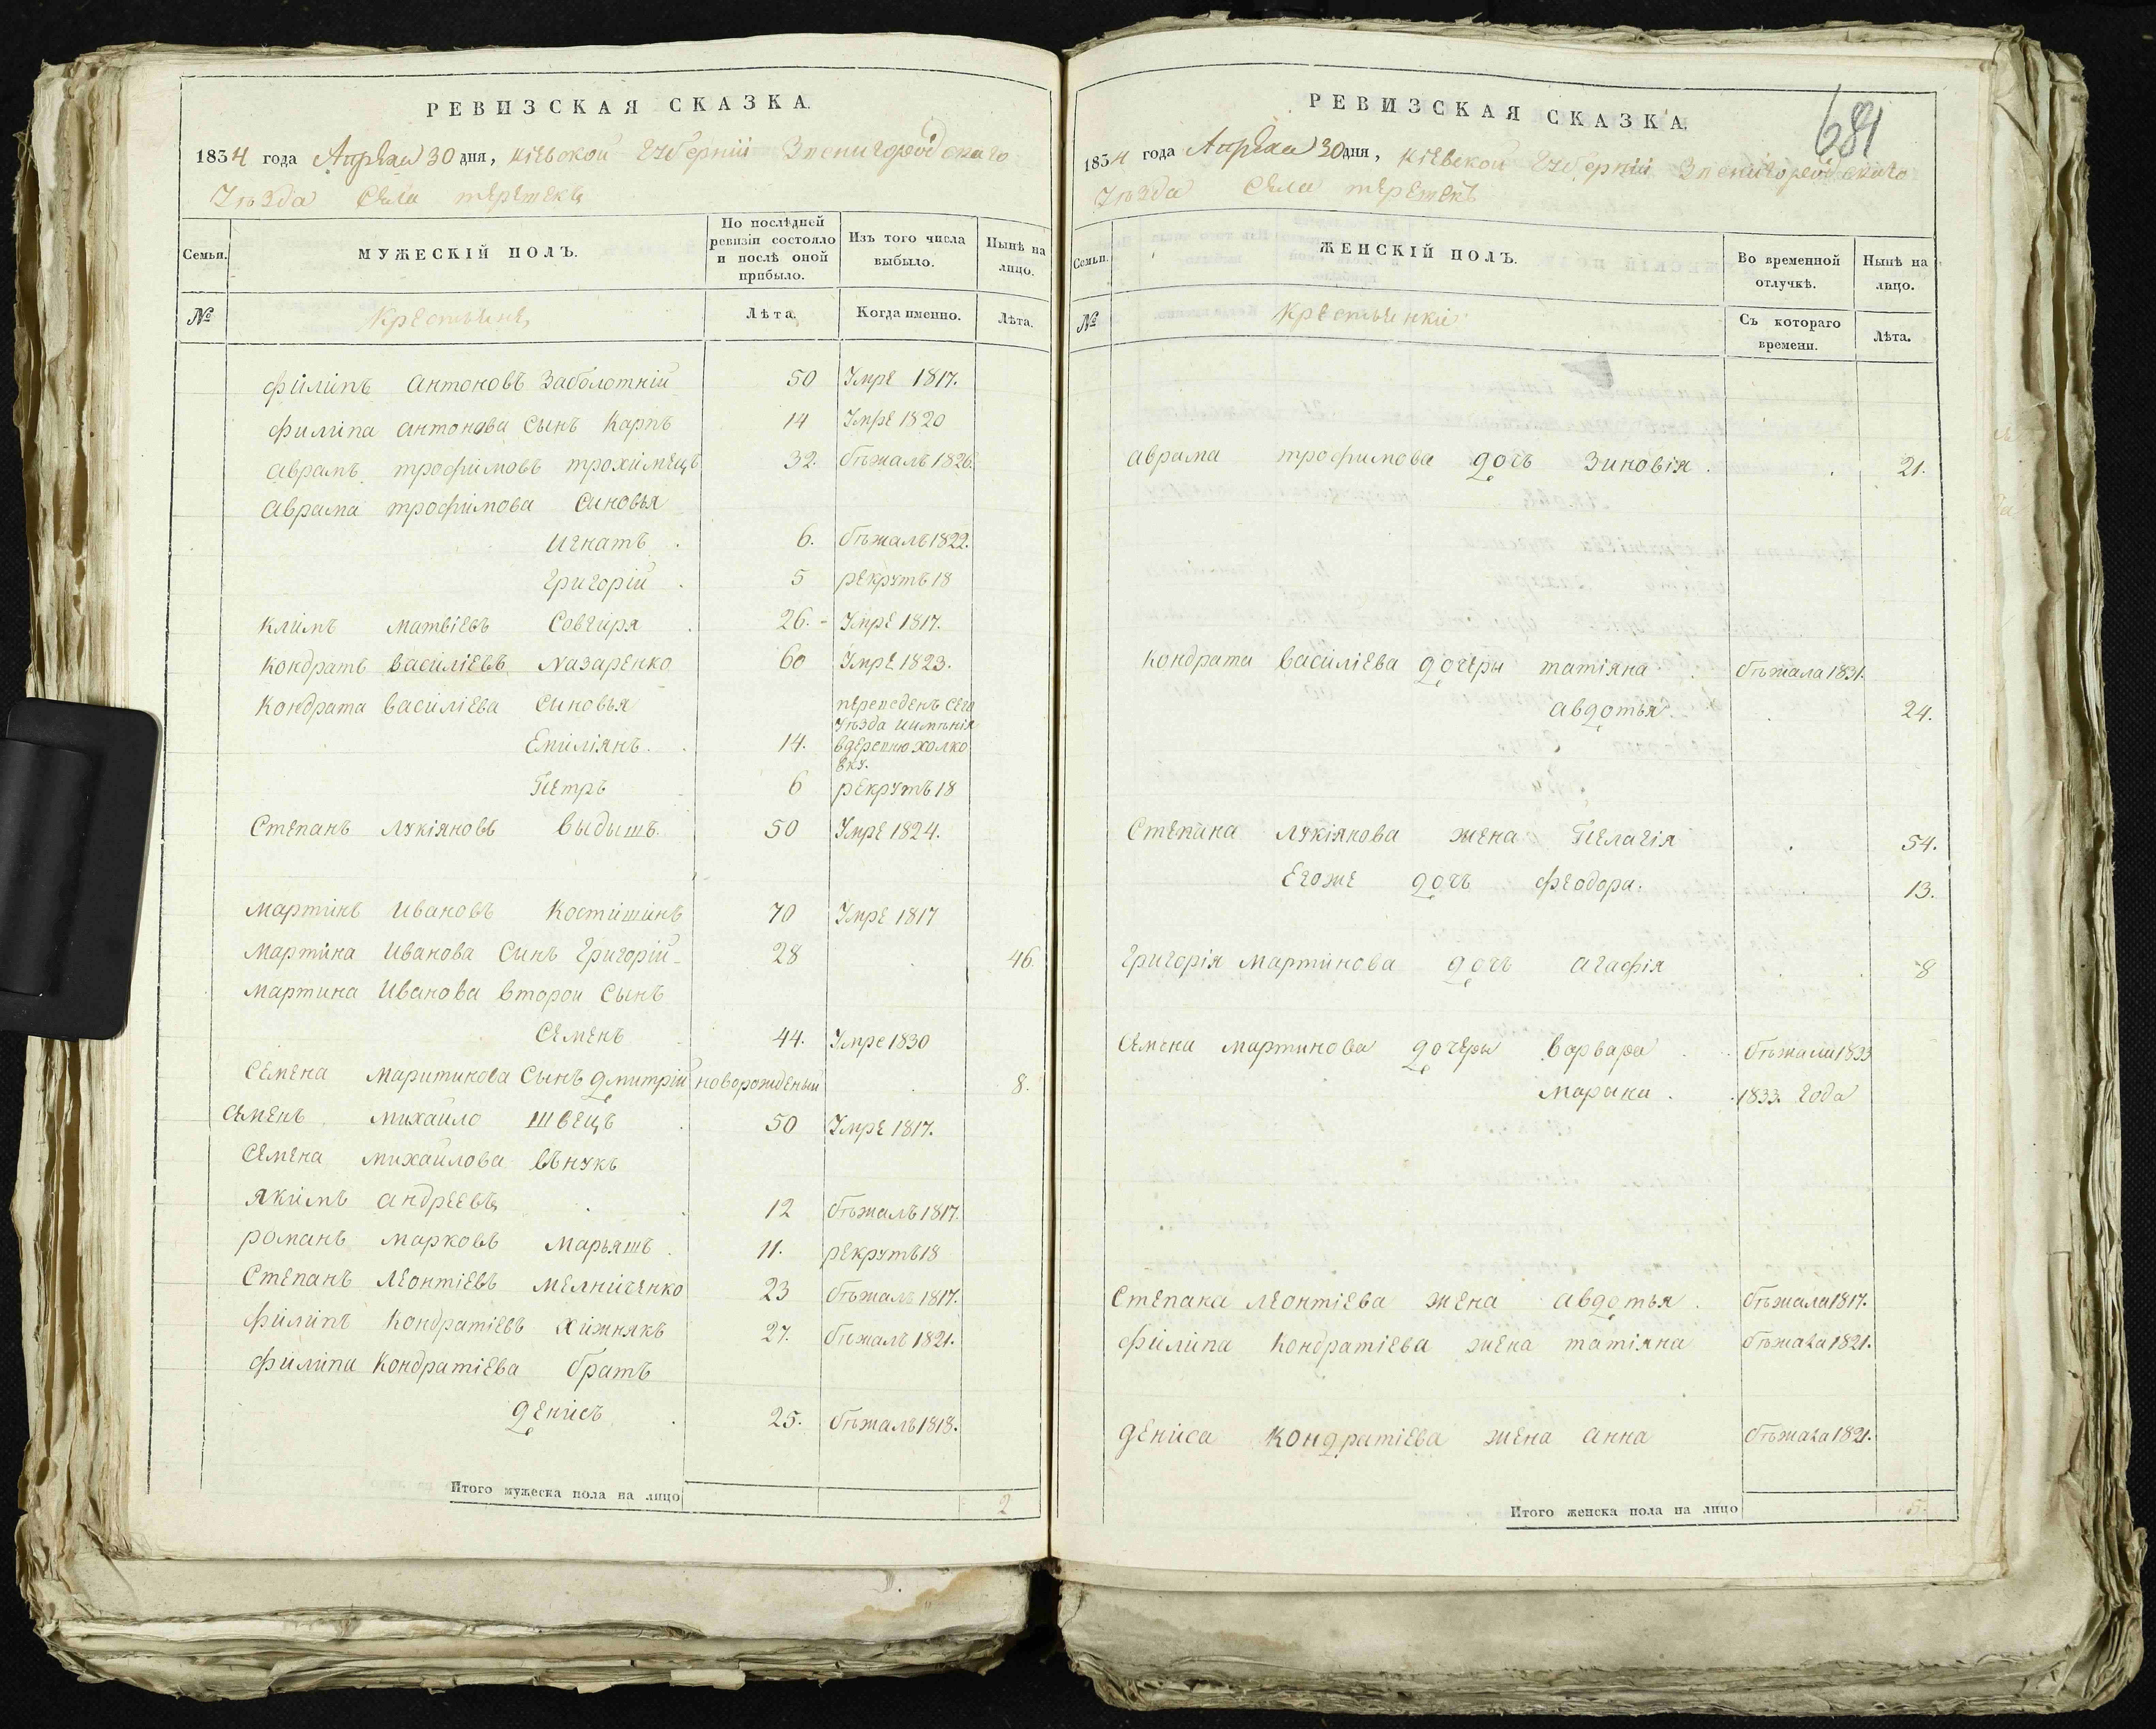 РЕВИЗСКАЯ СКАЗКА.
1834 года Апреля 30 дня, Кіевской Губерніи Звенигородскаго
Уѣзда Села терешекъ
Семьи.
МУЖЕСКІЙ ПОЛЪ.
По послѣдней ревизіи состояло и послѣ оной прибыло.
Изъ того числа выбыло.
Нынѣ на лицо.
№
Крестьяне
Лѣта.
Когда именно.
Лѣта.
филипъ антоновъ Заболотній 50 Умре 1817.
филипа антонова Сынъ Карпъ 14 Умре 1820
аврамъ трофимовъ трохимецъ 32. бѣжалъ 1826.
аврама трофимова Синовья
Игнатъ 6. бѣжалъ 1822.
Григорій 5 рекрутъ 18
климъ матвіевъ Совгиря 26. Умре 1817.
кондратъ василіевъ Назаренко 60 Умре 1823.
кондрата василіева Синовья
Емиліянъ. 14. переведенъ сего
Уѣзда и имѣнія
вдеревню холко
вку.
Петръ 6 рекрутъ 18
Степанъ Лукіяновъ выдышъ. 50 Умре 1824.
мартинъ Ивановъ Костишинъ 70 Умре 1817
мартина Иванова Сынъ Григорій 28 46.
мартина Иванова второй Сынъ
Семенъ 44. Умре 1830
Семена маритинова Сынъ дмитрій новорожденый 8.
Семенъ михайло Швецъ 50 Умре 1817.
Семена михайлова внукъ
якимъ андреевъ 12 бѣжалъ 1817.
романъ марковъ марьяшъ 11. рекрутъ 18
Степанъ Леонтіевъ мелниченко 23 бѣжалъ 1817.
филипъ Кондратіевъ хижнякъ 27. бѣжалъ 1821.
филипа Кондратіева братъ
денисъ 25. бѣжалъ 1818.
Итого мужеска пола на лицо 2
681
РЕВИЗСКАЯ СКАЗКА.
1834 года Апреля 30 дня, Кіевской Губерніи Звенигородскаго
Уѣзда Села терешекъ
Семьи.
ЖЕНСКІЙ ПОЛЪ.
Во временной отлучкѣ.
Нынѣ на лицо.
№
Крестьянки
Съ котораго времени.
Лѣта.
аврама трофимова дочь Зиновія. 21.
кондрата василіева дочеры татіяна бѣжала 1831.
авдотья. 24.
Степана Лукіянова жена Пелагія 54.
Егоже дочь феодора. 13.
Григорія мартинова дочь агафія 8
Семена мартинова дочеры варвара бѣжали 1833
марина. 1833. года
Степана Леонтіева жена авдотья. бѣжала 1817.
филипа Кондратіева жена татіяна бѣжала 1821.
дениса Кондратіева жена анна бѣжала 1821.
Итого женска пола на лицо 5.